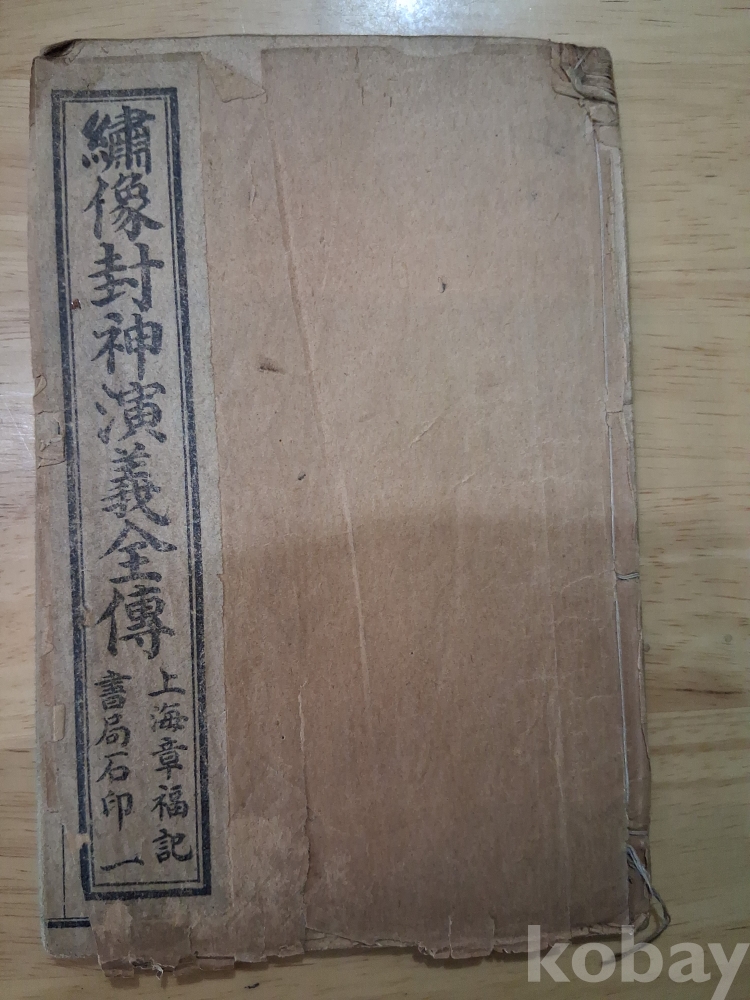 繡像封神演義全傳
上海章福記
書局石印 一
kobay